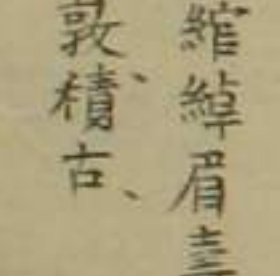 綰綽眉壽
敦積古、